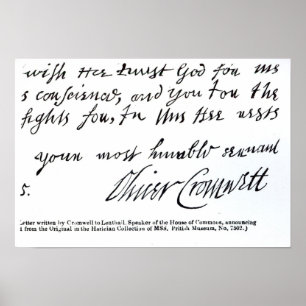 wish Hee trust God for his
s conscience, and you for the
fights for, In this Hee rests
your most humble servant
s. Oliver Cromwell
Letter written by Cromwell to Lenthall, Speaker of the House of Commons, announcing
d from the Original in the Harleian Collection of MSS, British Museum, No. 7502. )